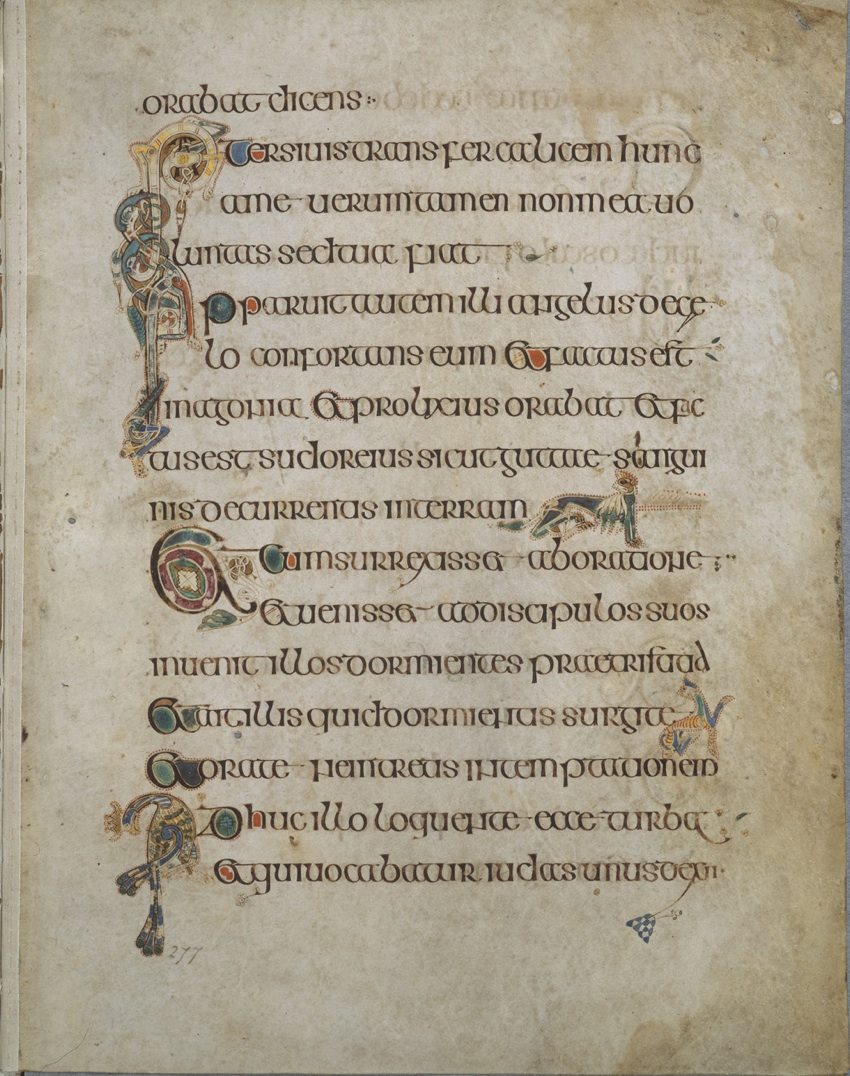 orabat dicens
Pater si uis transfer calicem hunc
a me uerumtamen non mea uo
luntas sed tua fiat
Apparuit autem illi angelus de cae
lo confortans eum et factus est
in agonia et prolixius orabat et fac
tus est sudor eius sicut guttae sangui
nis decurrentis in terram
Et cum surrexisset ab oratione
et uenisset ad discipulos suos
inuenit illos dormientes prae tristitia
et ait illis quid dormientis surgite
et orate ne intretis in temptationem
Adhuc illo loquente ecce turba
et qui uocabatur iudas unus de xii
277